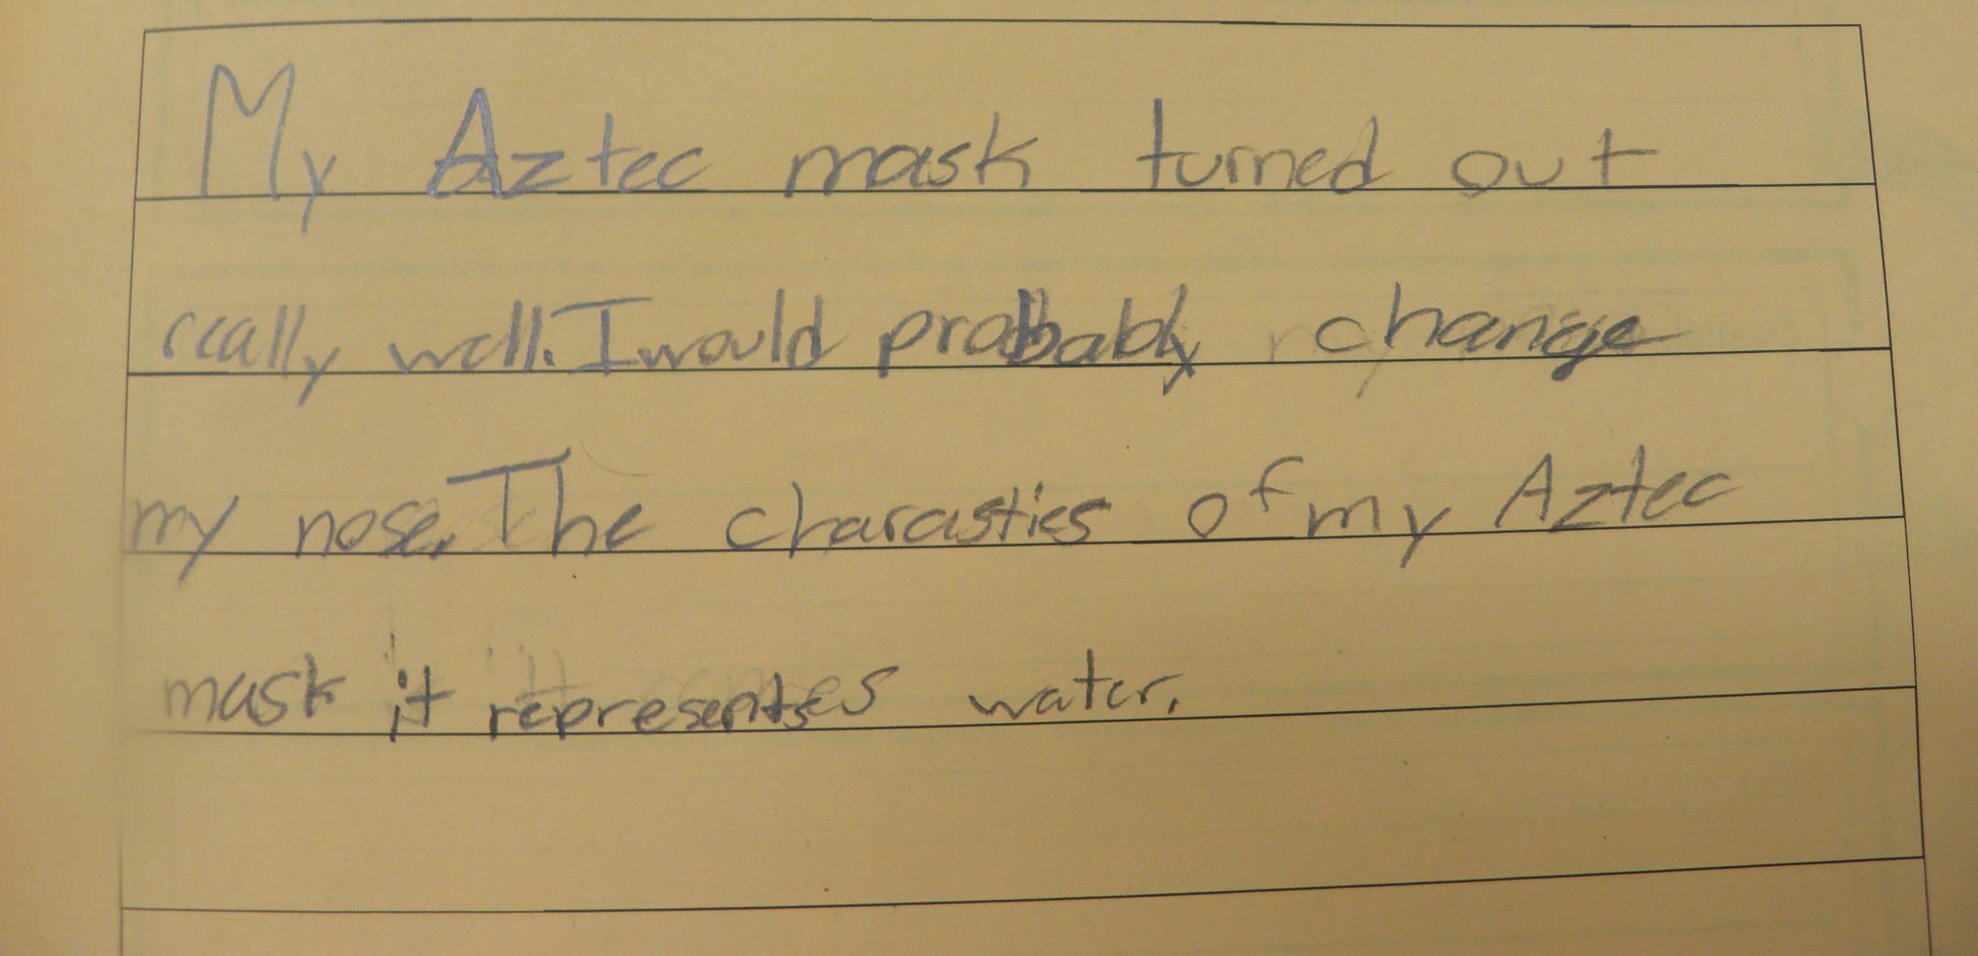 My Aztec mask turned out
really well. I would probably change
my nose. The charasties of my Aztec
mask it represents water.